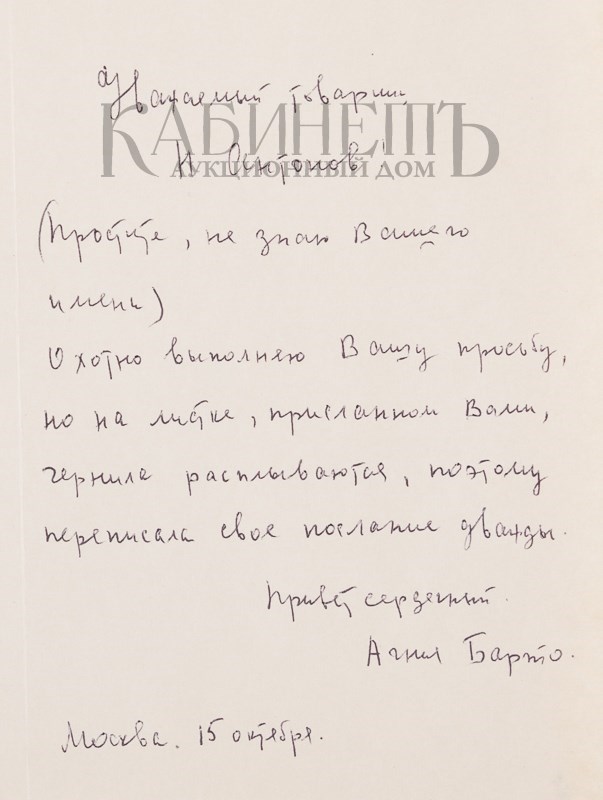 Уважаемый товарищ
КАБИНЕТЪ
АУКЦИОННЫЙ ДОМ
Н Антонов!
(Простите, не знаю Вашего
имени)
Охотно выполняю Вашу просьбу,
но на листке, присланном Вами,
чернила расплываются, поэтому
переписала свое послание дважды.
Привет сердечный.
Агния Барто.
Москва. 15 октября.